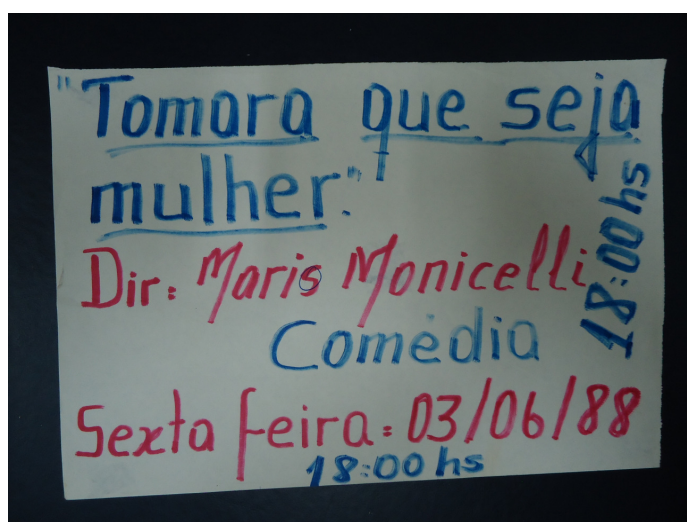 "Tomara que seja
mulher."
Dir: Maris Monicelli
Comédia
18:00 hs
Sexta feira: 03/06/88
18:00 hs